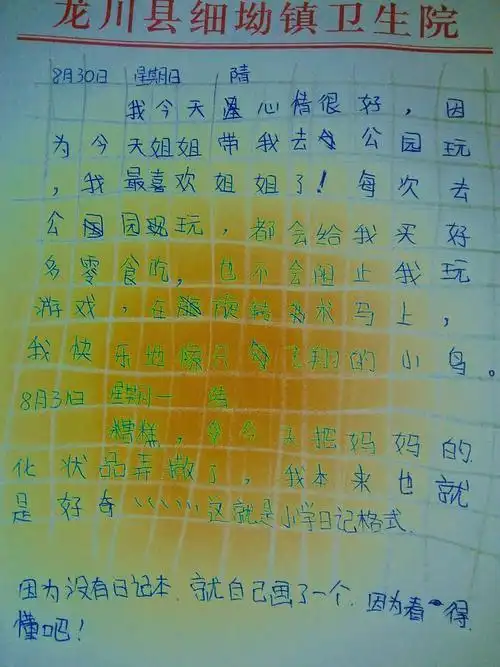 龙川县细坳镇卫生院
8月30日 星期日 晴
我今天心情很好,因
为今天姐姐带我去公园玩
,我最喜欢姐姐了!每次去
公园玩,都会给我买好
多零食吃,也不会阻止我玩
游戏,在旋转木马上,
我快乐地像只飞翔的小鸟。
8月31日 星期一 晴
糟糕,今天把妈妈的
化状品弄撒了,我本来也就
是好奇、、、、、、这就是小学日记格式.
因为没有日记本.就自己画了一个.因为看得
懂吧!